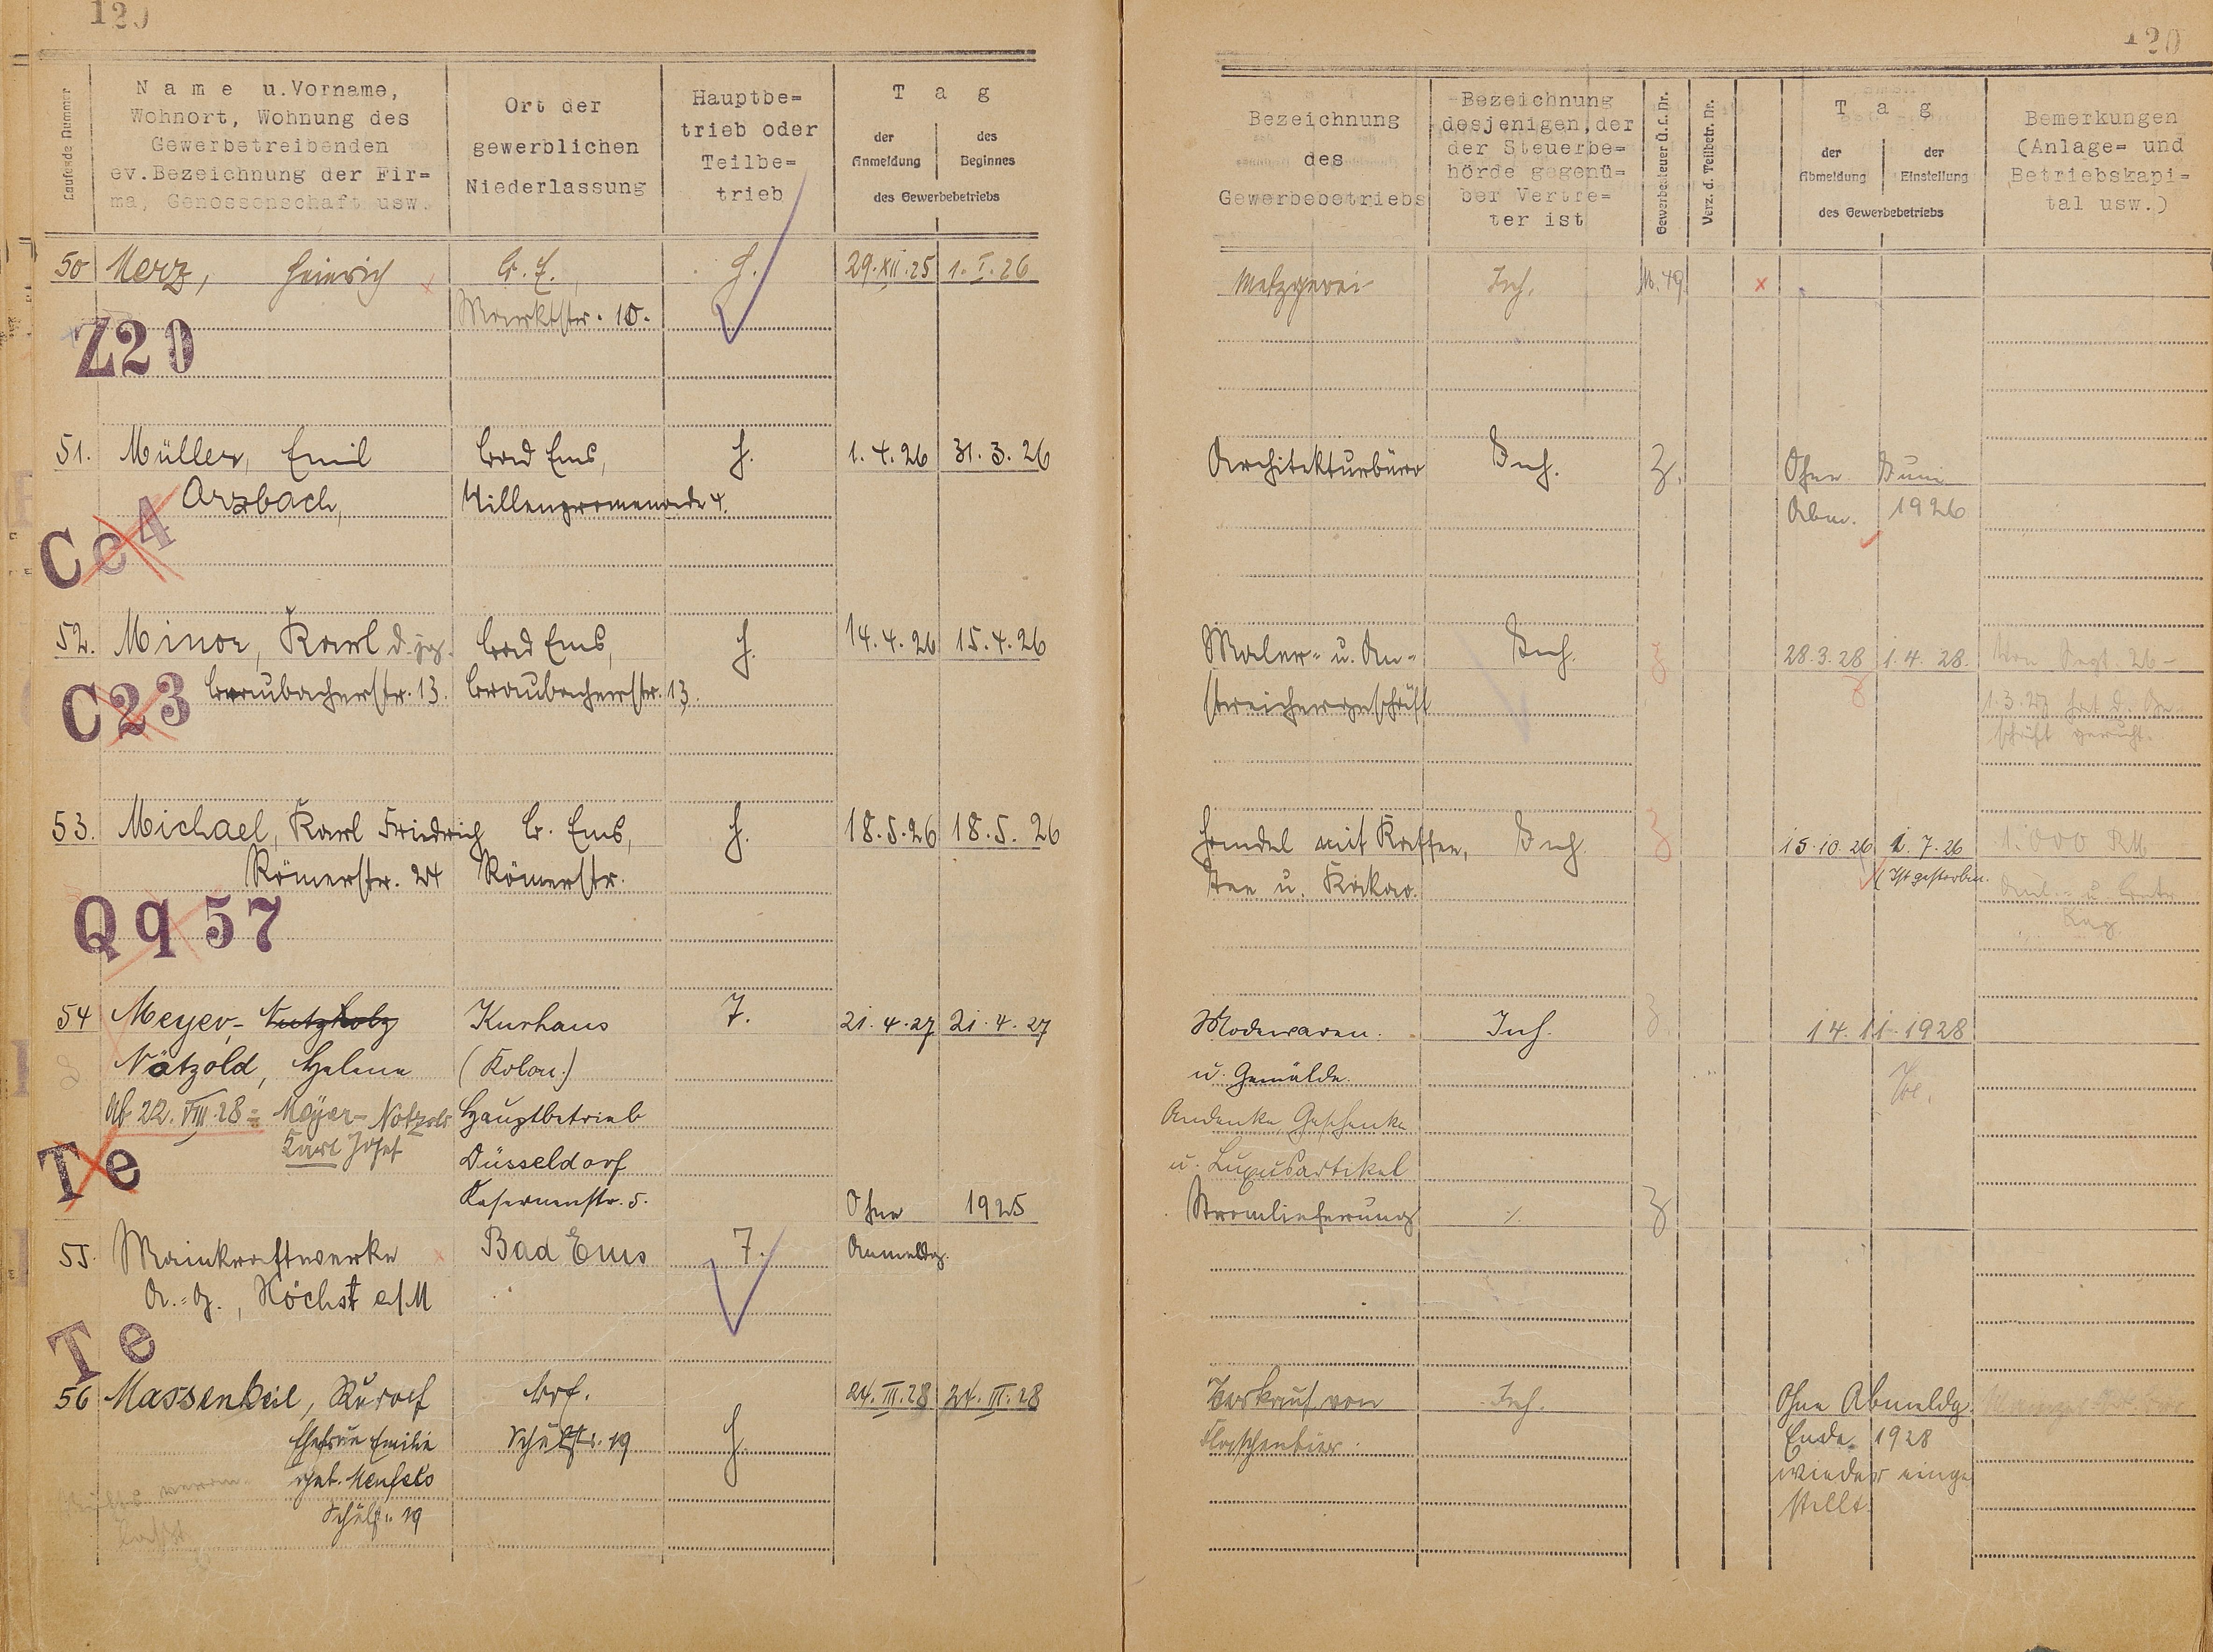 120
Laufende Nummer
Name u.Vorname,
Wohnort, Wohnung des
Gewerbetreibenden
ev.Bezeichnung der Fir=
ma, Genossenschaft usw.
Ort der
gewerblichen
Niederlassung
Hauptbe=
trieb oder
Teilbe=
trieb
Tag
der Anmeldung
des Beginnes
des Gewerbebetriebs
50 Merz, Heinrich B. E. H. 29.XII.25 1.I.26
Marktstr. 10.
Z20
51. Müller, Emil Bad Ems, H. 1.4.26 31.3.26
Arzbach, Villenpromenade 4.
Cc4
52. Minor, Karl d. jg. Bad Ems, H. 14.4.26 15.4.26
Braubacherstr. 13. Braubacherstr. 13.
C23
53. Michael, Karl Friedrich B. Ems, H. 18.5.26 18.5.26
Römerstr. 24 Römerstr.
Qq57
54 Meyer- Nutzholz Kurhaus F. 21.4.27 21.4.27
Nätzold, Helene (Kolon.)
Ab 22.VIII.28 = Meyer- Hauptbetrieb
Karl Josef Düsseldorf
Te
Kasernenstr. 5.
Ohne 1925
55. Mainkraftwerke Bad Ems F. Anmeldg.
A.=G., Höchst a/M
Te
56 Massenkeil, Rudolf 24.III.28 24.III.28
Ehefrau Emilie Schulstr. 19 H.
geb.
Schulstr. 19
120
Bezeichnung
des
Gewerbebetriebs
Bezeichnung
desjenigen,der
der Steuerbe=
hörde gegenü=
ber Vertre=
ter ist
Gewerbesteuer Ü.L.Nr.
Verz. d. Teilbetr. Nr.
Tag
der Abmeldung
der Einstellung
des Gewerbebetriebs
Bemerkungen
(Anlage= und
Betriebskapi=
tal usw.)
Metzgerei Inh. M.49
Architekturbüro Inh. Z. Ohne Juni
Abm. 1926
Maler- u. An- Inh. 28.3.28 1.4.28. Von Sept. 26 -
streichergeschäft 1.3.27 hat d. Ge-
schäft geruht.
Handel mit Kaffee, Inh. 15.10.26 1.7.26 1.000 RM
Tee u. Kakao. (Ist gestorben.
Modewaren. Inh. 14.11.1928
u. Gemälde.
Andenken Geschenke
u. Luxusartikel
Stromlieferung ./.
Verkauf von Inh. Ohne Abmeldg.
Flaschenbier. Ende 1928
wieder einge
stellt.